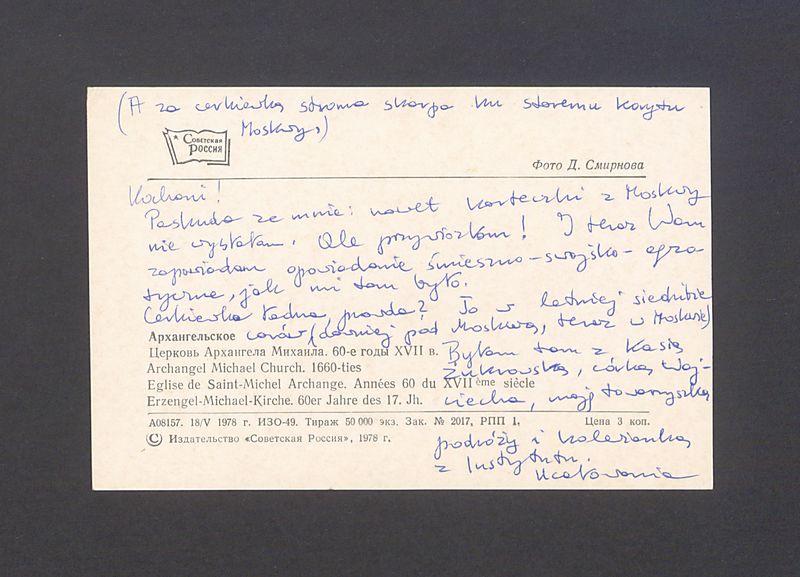 (A za cerkiewką stroma skarpa ku staremu korytu
Moskwy.)
Советская
Россия
Фото Д. Смирнова
Kochani!
Paskuda ze mnie: nawet karteczki z Moskwy
nie wysłałam. Ale przywiozłam! I teraz Wam
zapowiadam opowiadanie śmieszno-swojsko-egzo-
tyczne, jak mi tam było.
Cerkiewka ładna, prawda? To w letniej siedzibie
carów (dawniej pod Moskwą, teraz w Moskwie)
Архангельское
Церковь Архангела Михаила. 60-е годы XVII в.
Archangel Michael Church. 1660-ties
Eglise de Saint-Michel Archange. Années 60 du XVIIème siècle
Erzengel-Michael-Kirche. 60er Jahre des 17. Jh.
Byłam tam z Kasią
Żukrowską, córką Woj-
ciecha, moją towarzyszką
А08157. 18/V 1978 г. ИЗО-49. Тираж 50 000 экз. Зак. № 2017, РПП 1, Цена 3 коп.
© Издательство «Советская Россия», 1978 г.
podróży i koleżanką
z Instytutu.
Ucałowania